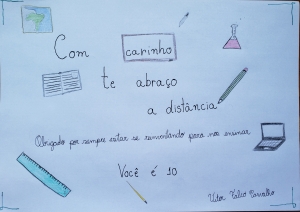 Com carinho
te abraço
a distância
Obrigado por sempre estar se reinventando para nos ensinar
Você é 10
Carvalho